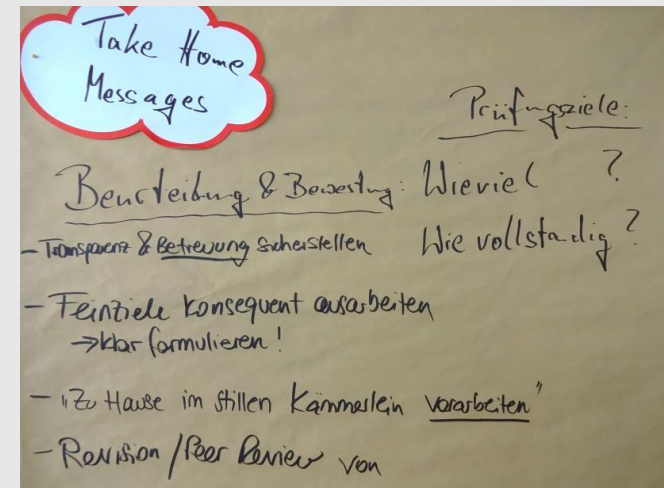 Take Home
Messages
Prüfungsziele:
Beurteilung & Bewertung: Wieviel ?
Wie vollständig?
- Transparenz & Betreuung sicherstellen
- Feinziele konsequent ausarbeiten
→ klar formulieren!
- "Zu Hause im stillen Kämmerlein vorarbeiten"
- Revision / Peer Review von